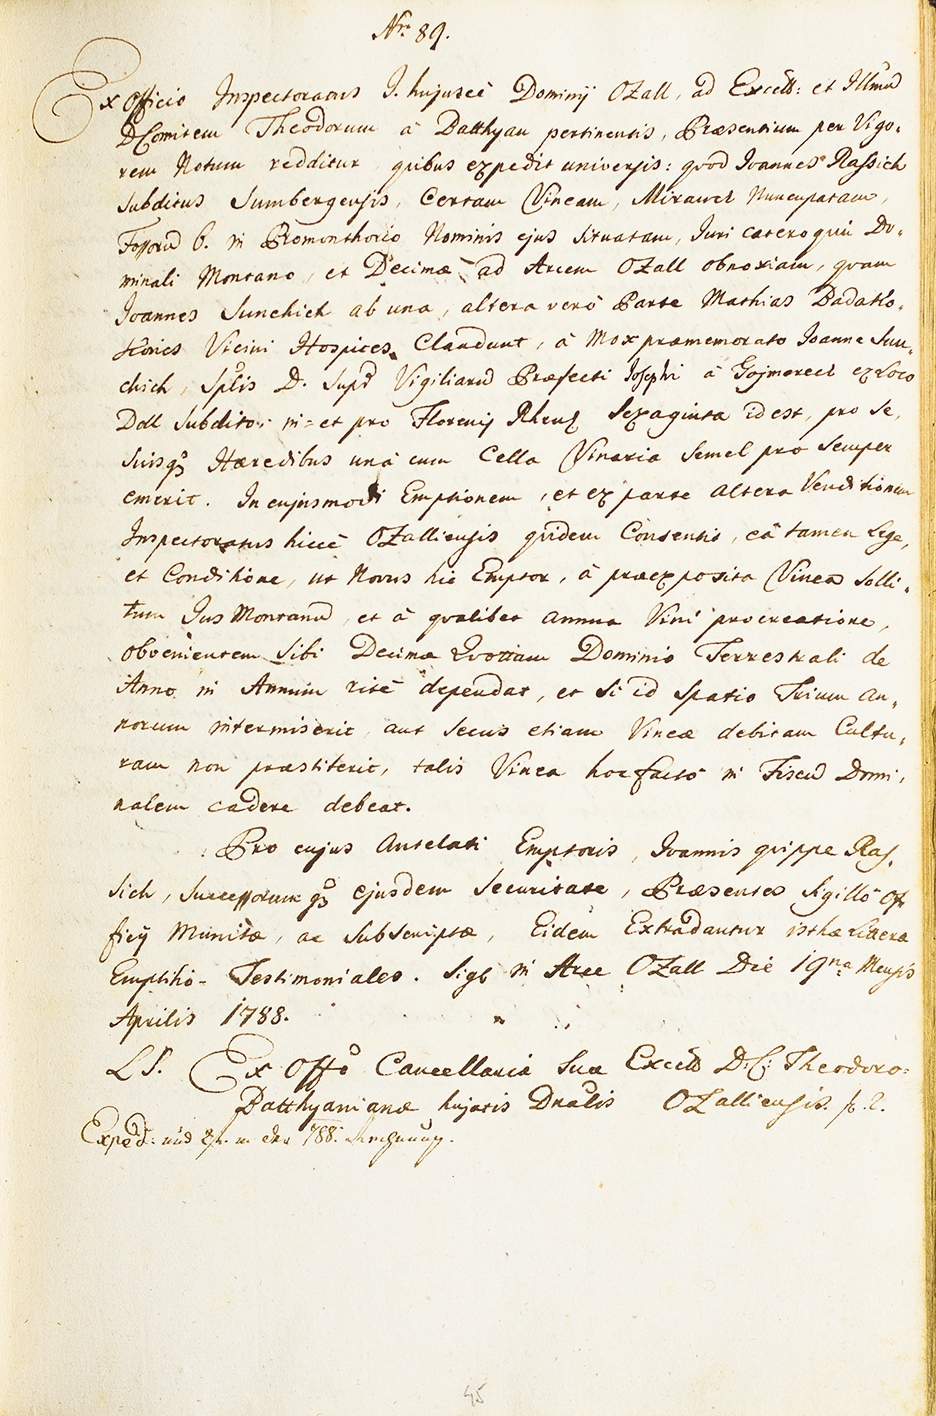 Nr: 89.
Ex Officio Inspectoratus I. hujusce Dominij Ozall, ad Excell: et Illmũ
D Comitem Theodorum à Batthyan pertinentis, Præsentium per Vigo,
rem Notum redditur quibus expedit universis: quod Ioannes Rassich
Subditus Sumbergensis, Certam Vineam, Mirawel Nuncupatam,
Fossorũ 6. in Promonthorio Nominis ejus Situatam, Iuri cæteroquin Do,
minali Montano, et Decimæ ad Arcem Ozall obnoxiam, quam
Ioannes Sunchich ab una, altera verò Parte Mathias Badatho,
Vicini Hospices Claudunt, à Mox præmemorato Ioanne Sun,
chich, Splis D. Supr Vigiliarũ Præfecti Josephi à Gojmerecz ex Loco
Doll Subdito, in et pro Florenis Rhens Sexaginta id est, pro Se,
Suisq Hæredibus unà cum Cella Vinaria Semel pro Semper
emerit. In cujusmodi Emptionem, et ex parte altera Venditionem
Inspectoratus hicce Ozalliensis quidem Consentit, eâ tamen Lege,
et Conditione, ut Novus hic Emptor, à præexposita Vinea Solli,
tum Jus Montanũ, et à qualibet annua Vini procreatione,
obvenientem Sibi Decimæ Quottam Dominio Terrestrali de
Anno in Annum ritè dependat, et Si id Spatio Trium an,
norum intermiserit, aut Secus etiam Vineæ debitam Cultu,
ram non præstiterit, talis Vinea hocfacto in Fiscũ Domi,
nalem cadere debeat.
Pro cujus Antelati Emptoris, Ioannis quippe Ras,
sich, Successorumq ejusdem Securitate, Præsentes Sigillo Of
ficij Munitæ, ac Subscriptæ, Eidem Extradantur isthæ Litteræ
Emptitio- Testimoniales. Sigl in Arce Ozall Die 19na Mensis
Aprilis 1788.
L S. Ex Offo Cancellaria Suæ Excell D: C: Theodoro-
Batthyanianæ hujatis Dnalis Ozalliensis.
Exped:
45